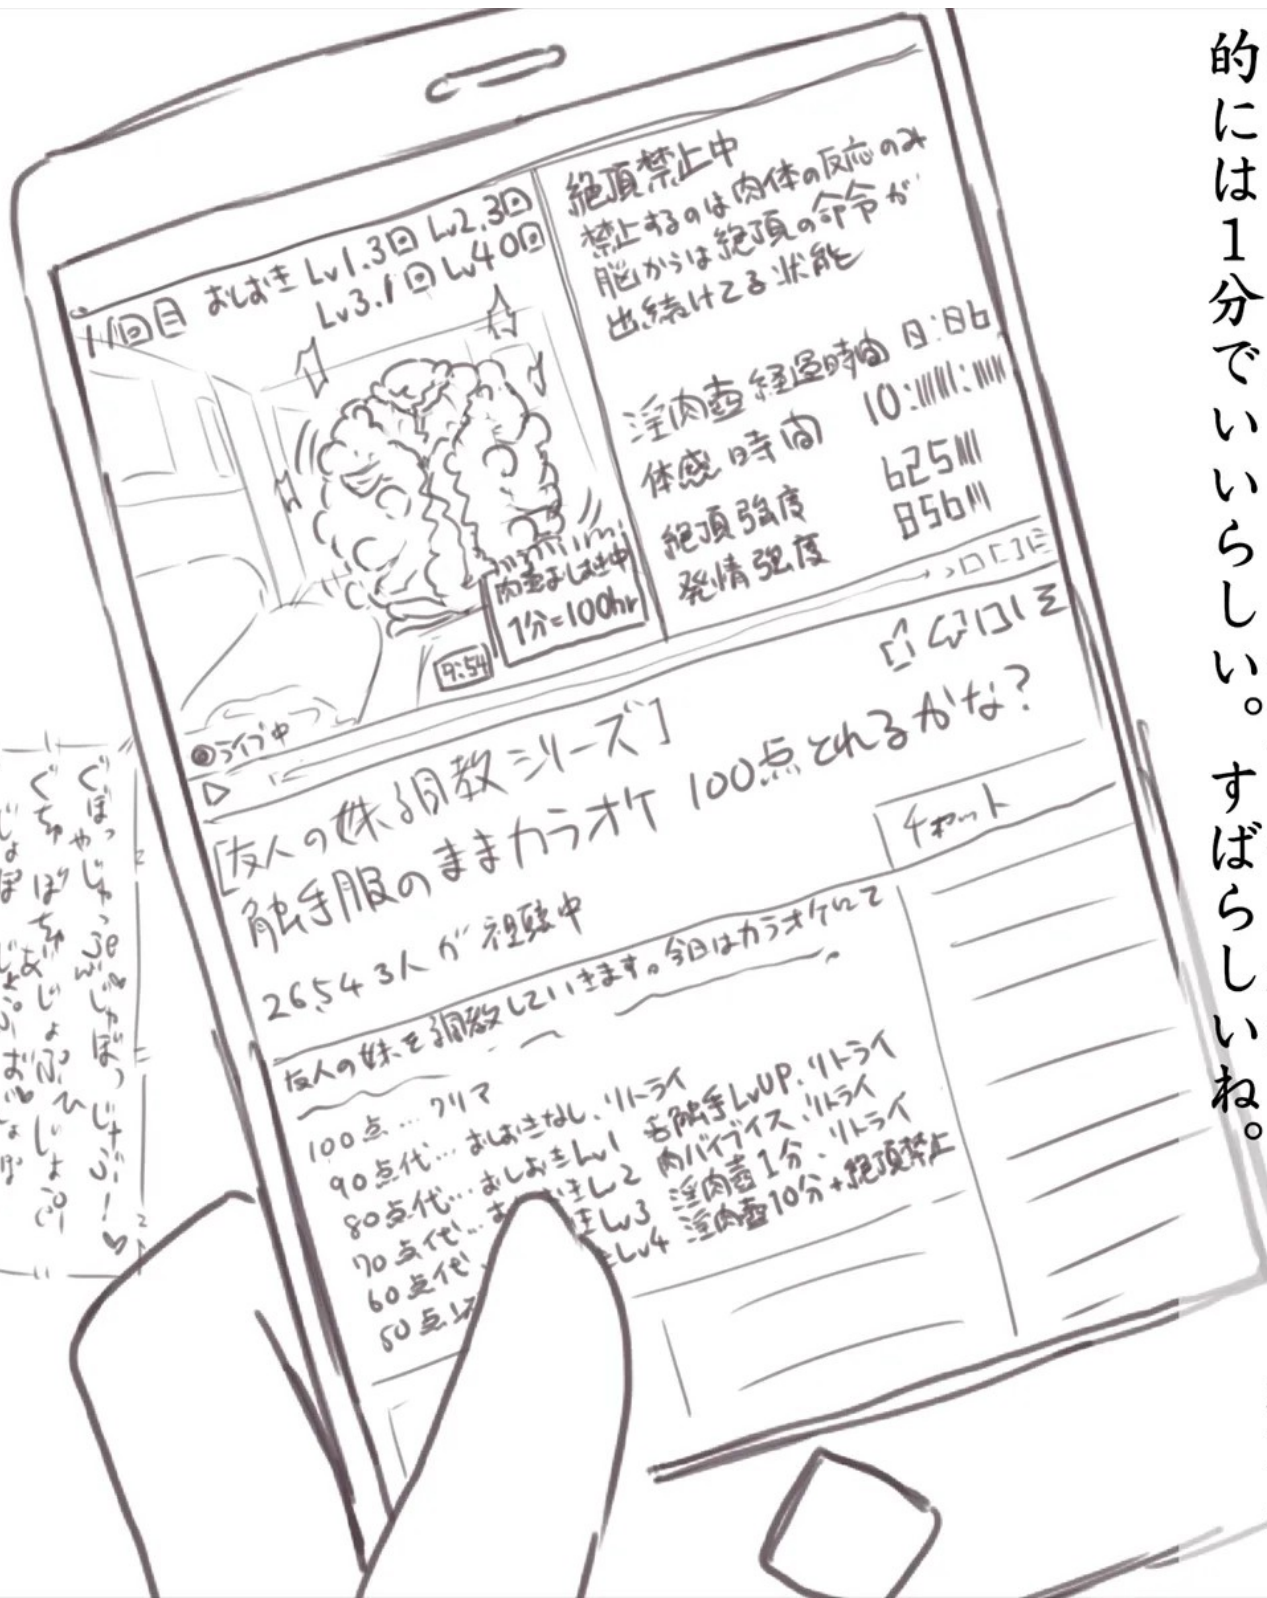 的には1分でいいらしい。すばらしいね。
11回目 おしおき Lv1.3回 Lv2.3回
Lv3.1回 Lv4 0回
絶頂禁止中
禁止するのは肉体の反応のみ
脳からは絶頂の命令が
出続けてる状態
淫肉壺経過時間 8:86
体感時間 10:
絶頂強度 625
発情強度 856
肉壺おしおき中
1分=100hr
9:54
ライブ中
[友人の妹調教シリーズ]
触手服のままカラオケ 100点とれるかな?
26543人が視聴中
チャット
友人の妹を調教していきます。今日はカラオケにて
100点…クリア
90点代…おしおきなし、リトライ
80点代…おしおきLv1 各触手LvUP、リトライ
70点代…お Lv2 肉バイブイス リトライ
60点代 Lv3 淫肉壺1分、リトライ
50点以 Lv4 淫肉壺10分+絶頂禁止